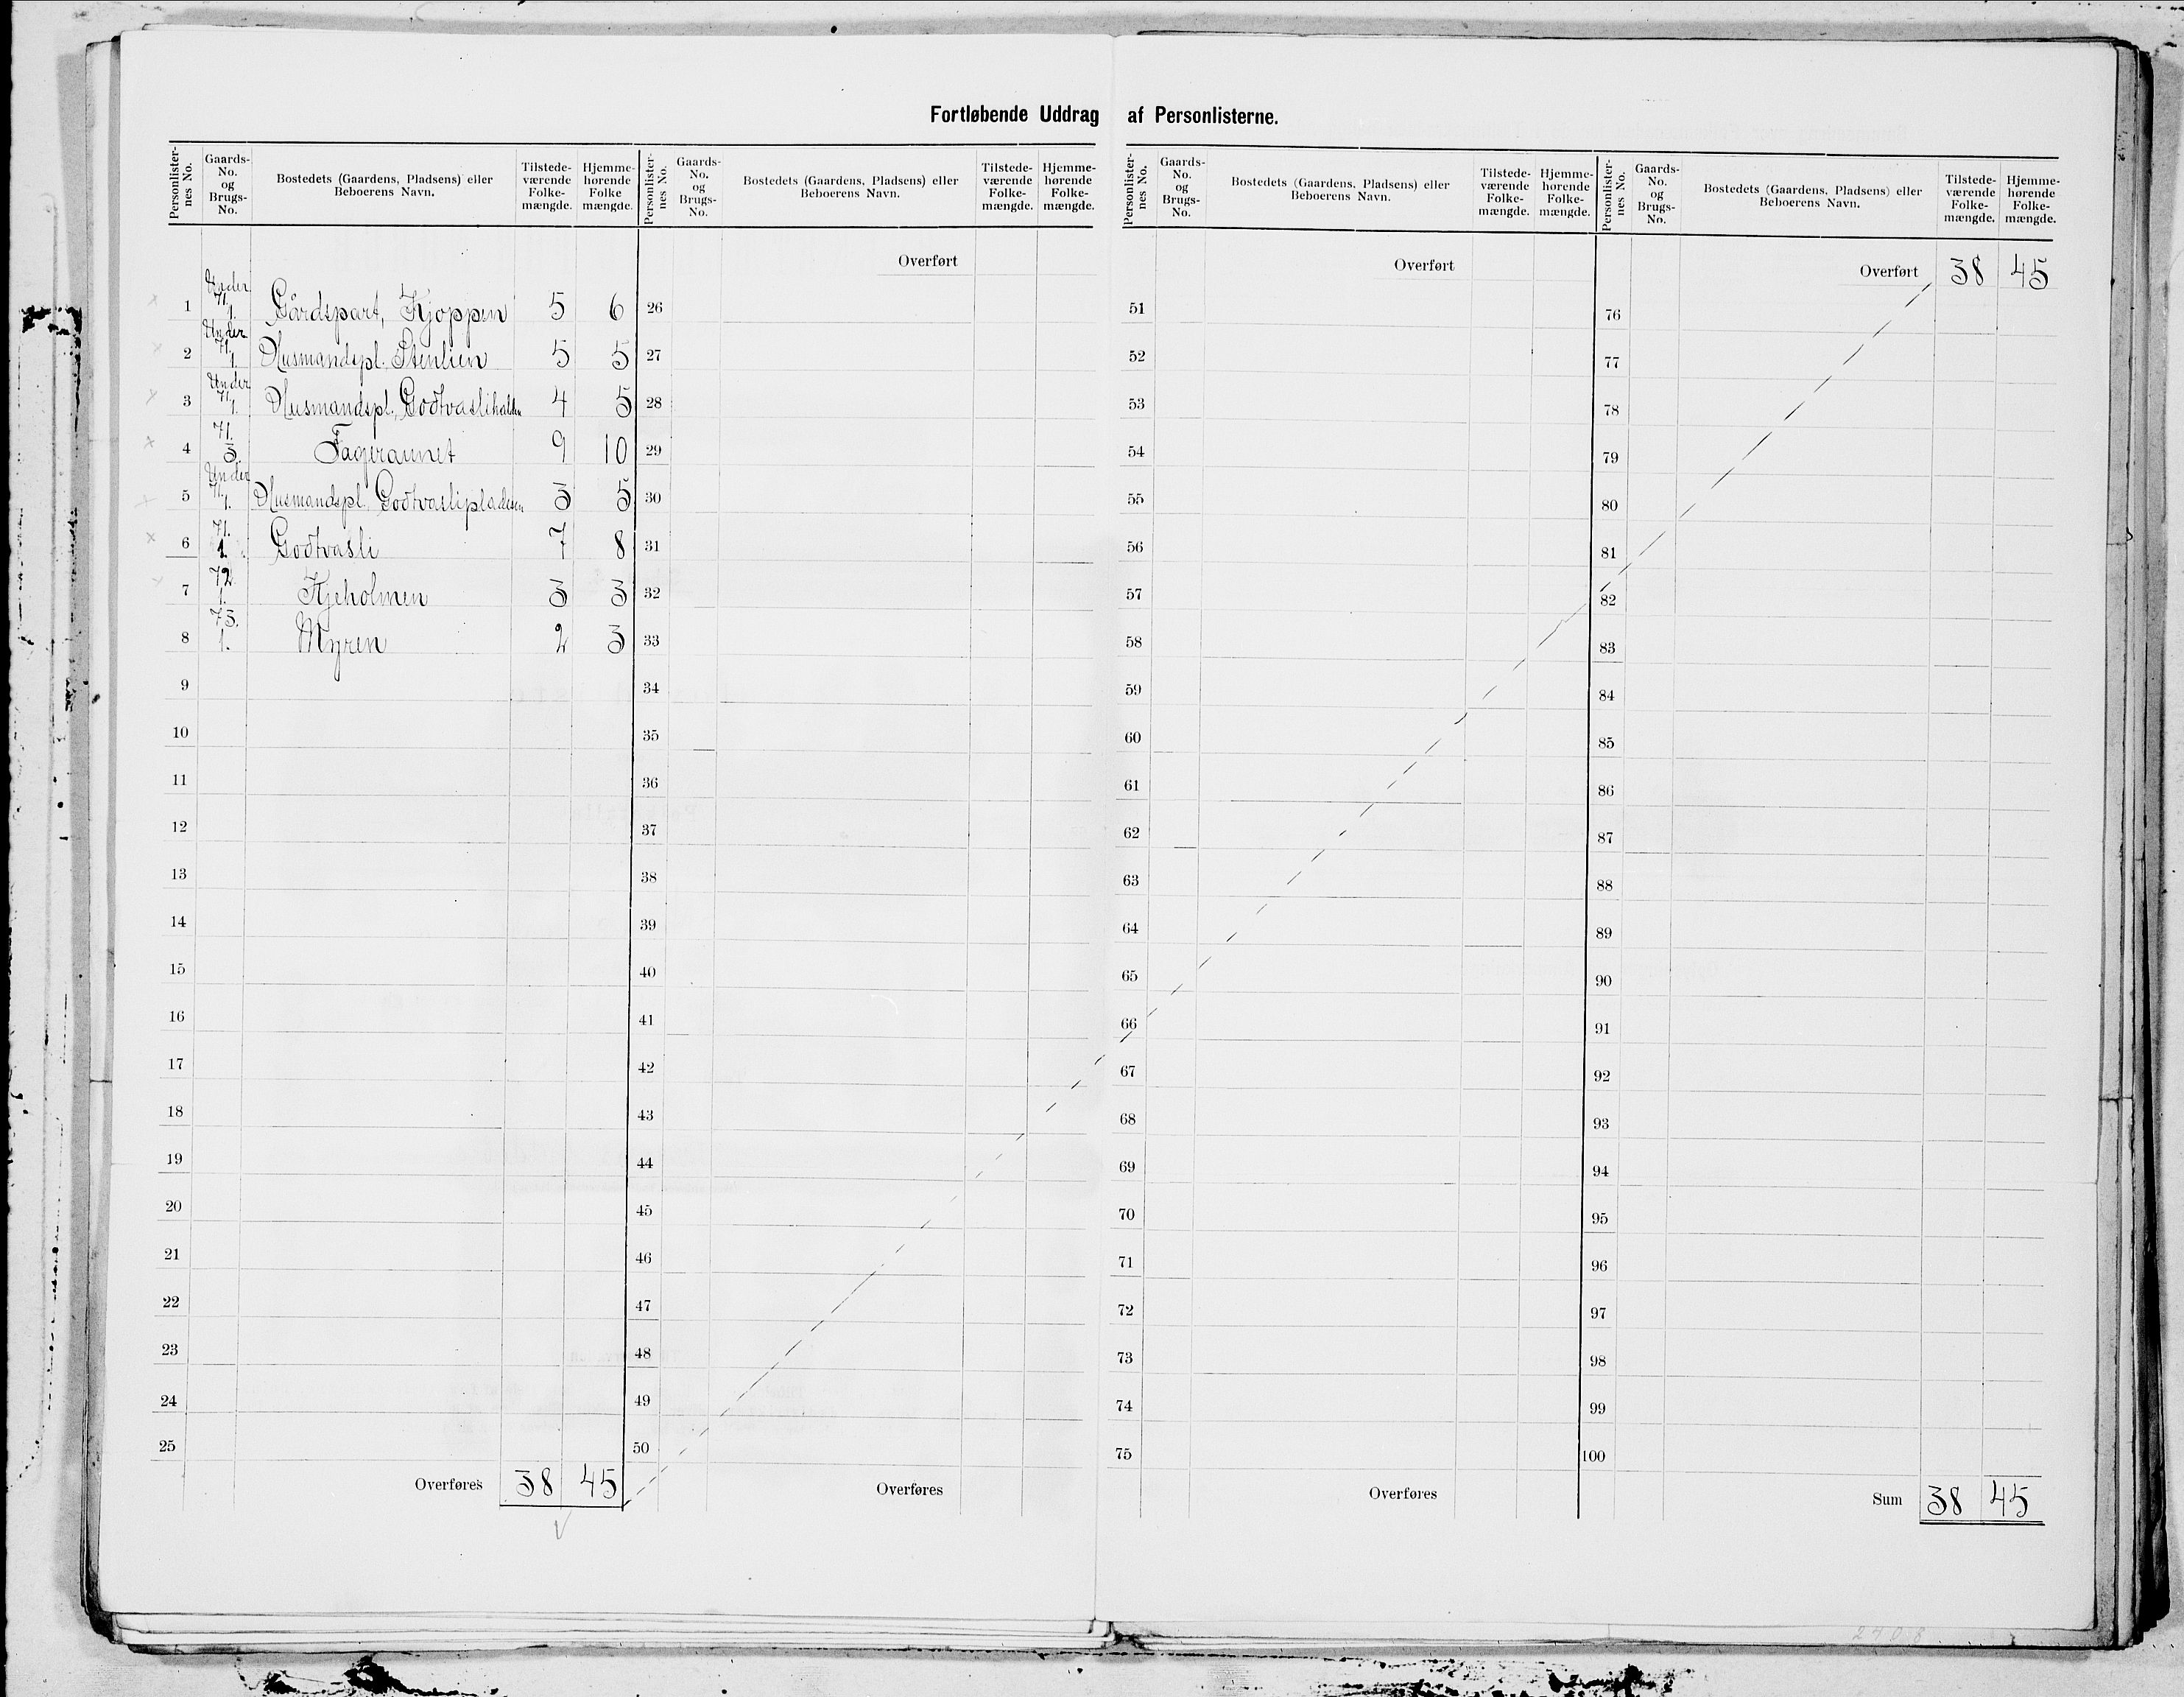 Fortløbende Uddrag af Personlisterne.
Personlister-nes No. Gaards-No. og Brugs-No. Bostedets (Gaardens, Pladsens) eller Beboerens Navn. Tilstede-værende Folke-mængde. Hjemme-hørende Folke mængde.
Personlister-nes No. Gaards-No. og Brugs-No. Bostedets (Gaardens, Pladsens) eller Beboerens Navn. Tilstede-værende Folke-mængde. Hjemme-hørende Folke-mængde.
Personlister-nes No. Gaards-No. og Brugs-No. Bostedets (Gaardens, Pladsens) eller Beboerens Navn. Tilstede-værende Folke-mængde. Hjemme-hørende Folke-mængde.
Personlister-nes No. Gaards-No. og Brugs-No. Bostedets (Gaardens, Pladsens) eller Beboerens Navn. Tilstede-værende Folke-mængde. Hjemme-hørende Folke-mængde.
1 Under 71. 1. Gårdspart, Kjoppen 5 6
2 Under 71. 1. Husmandspl. Stenlien 5 5
3 Under 71. 1. Husmandspl. Godtvaslihalden 4 5
4 71. 3. Fageraunet 9 10
5 Under 71. 1. Husmandspl. Godtvaslipladsen 3 5
6 71. 1. Godtvasli 7 8
7 72. 1. Kjeholmen 3 3
8 73. 1. Myren 2 3
9
10
11
12
13
14
15
16
17
18
19
20
21
22
23
24
25
Overføres 38 45
Overført
26
27
28
29
30
31
32
33
34
35
36
37
38
39
40
41
42
43
44
45
46
47
48
49
50
Overføres
Overført
51
52
53
54
55
56
57
58
59
60
61
62
63
64
65
66
67
68
69
70
71
72
73
74
75
Overføres
Overført 38 45
76
77
78
79
80
81
82
83
84
85
86
87
88
89
90
91
92
93
94
95
96
97
98
99
100
Sum 38 45